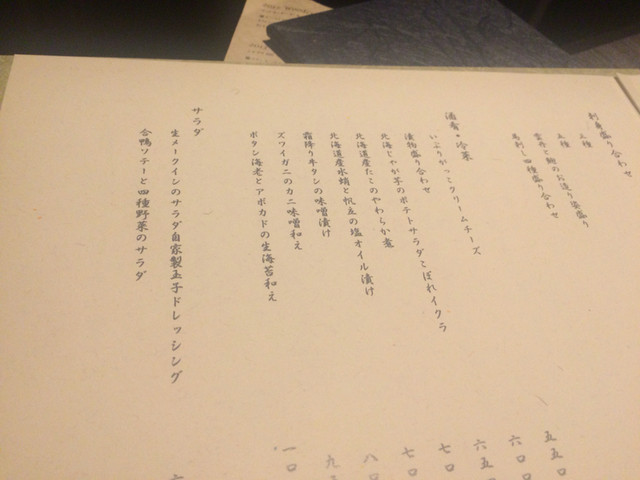 刺身盛り合わせ
三種
五種
雲丹と鮑のお造り姿盛り
馬刺し四種盛り合わせ
酒肴・冷菜
いぶりがっこクリームチーズ
漬物盛り合わせ
北海じゃが芋のポテトサラダこぼれイクラ
北海道産たこのやわらか煮
北海道産水蛸と帆立の塩オイル漬け
霜降り牛タンの味噌漬け
ズワイガニのカニ味噌和え
ボタン海老とアボカドの生海苔和え
サラダ
生メークインのサラダ自家製玉子ドレッシング
合鴨ソテーと四種野菜のサラダ
五五〇
六〇〇
六五
七〇
七〇
八〇
九
一〇